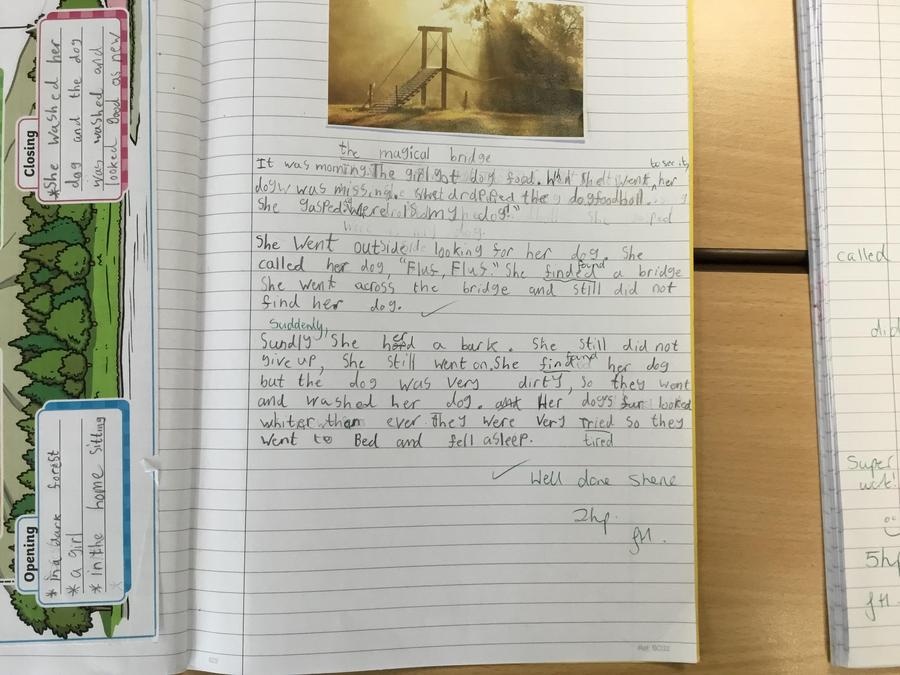 Closing
*She washed her
dog and the dog
was washed and
looked good as new
Opening
*In a dark forest
* a girl
* in the home sitting
the magical bridge
It was morning. The girl got dog food. went to see it, her
dog was missing. She dropped the dogfoodboll.
She gasped. "Were is my dog!"
She went outside looking for her dog. She
called her dog, "Flus, Flus." She finded found a bridge
She went across the bridge and still did not
find her dog. ✓
Suddenly,
Sundly She herd a bark. She still did not
give up, She still went on. She find found her dog
but the dog was very dirty, so they went
and washed her dog. Her dogs fur looked
whiter than ever They were very Tried so they
went to Bed and fell asleep. tired
✓ Well done Shene
2hp.
fH.
called
did
Super
work!
5hp
fH